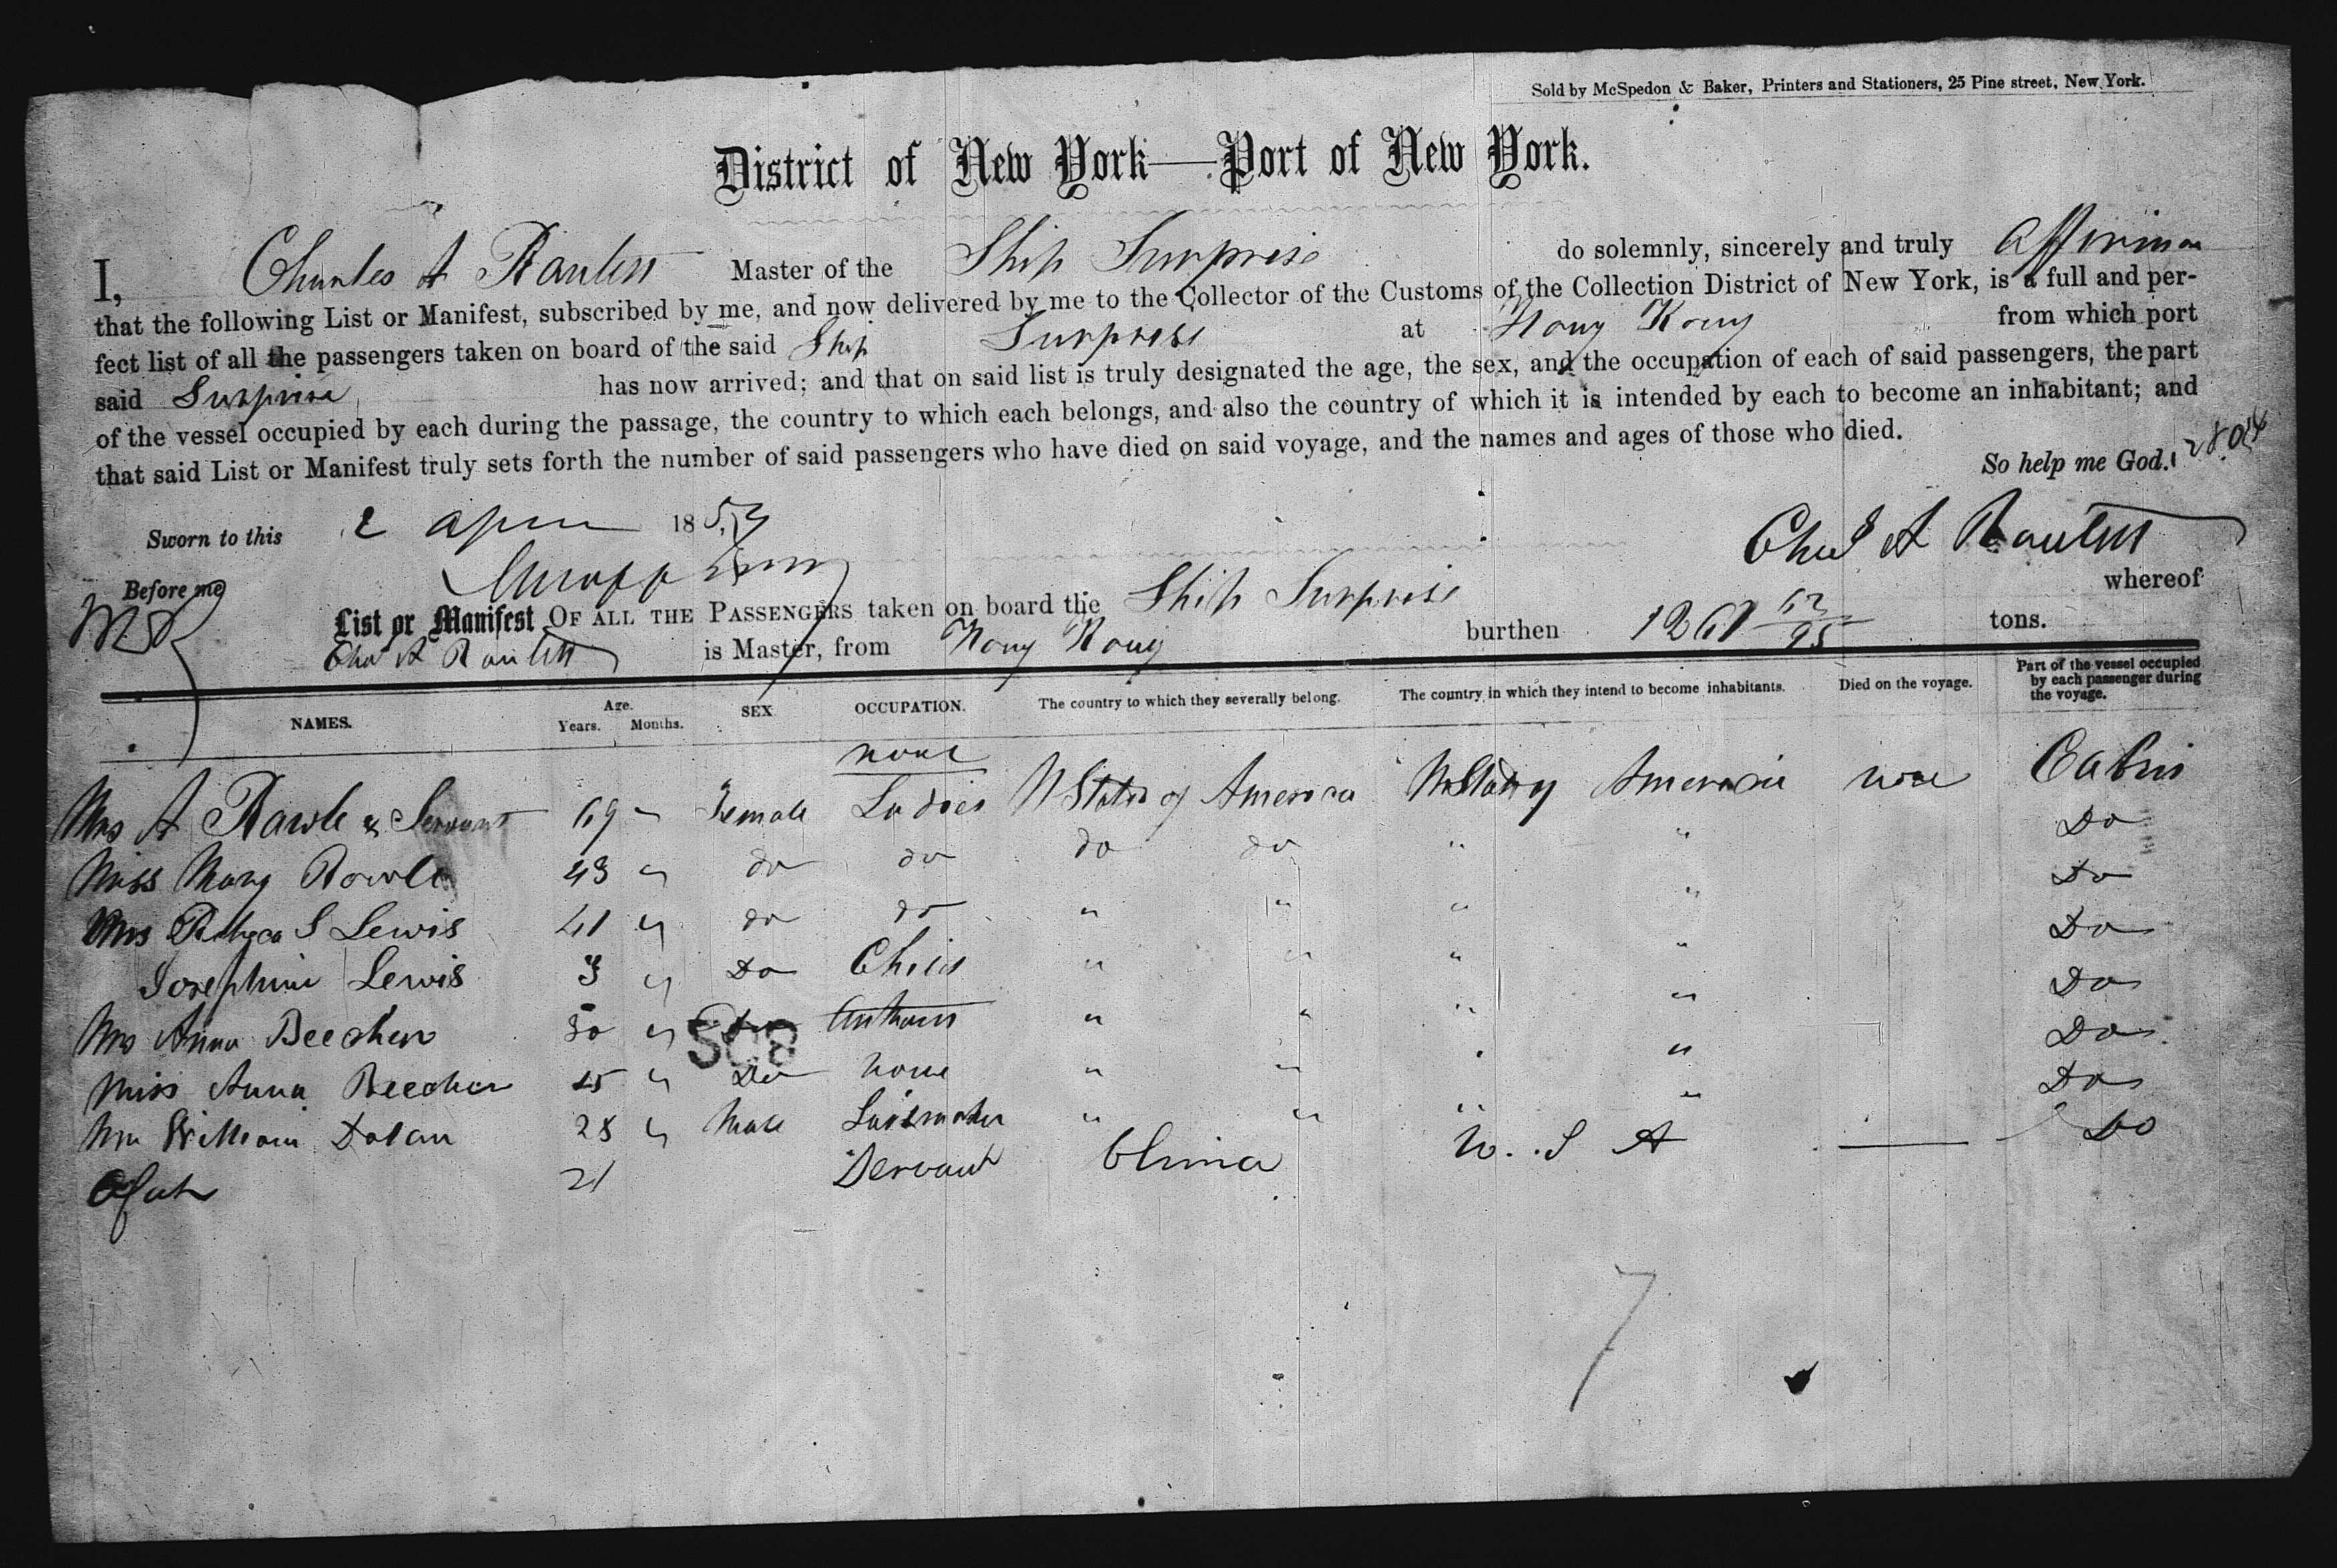 Sold by McSpedon & Baker, Printers and Stationers, 25 Pine street, New York.
District of New York—Port of New York.
I, Charles A Ranlett Master of the Ship Surprise do solemnly, sincerely and truly affirm
that the following List or Manifest, subscribed by me, and now delivered by me to the Collector of the Customs of the Collection District of New York, is a full and per-
fect list of all the passengers taken on board of the said Ship Surprise at Hong Kong from which port
said Surprise has now arrived; and that on said list is truly designated the age, the sex, and the occupation of each of said passengers, the part
of the vessel occupied by each during the passage, the country to which each belongs, and also the country of which it is intended by each to become an inhabitant; and
that said List or Manifest truly sets forth the number of said passengers who have died on said voyage, and the names and ages of those who died.
So help me God.
Sworn to this 2 April 1853
Chas A Ranlett
Before me
List or Manifest OF ALL THE PASSENGERS taken on board the Ship Surprise whereof
Chas A Ranlett is Master, from Hong Kong burthen 1261 62/95 tons.
NAMES. Age. Years. Months. SEX. OCCUPATION. The country to which they severally belong. The country in which they intend to become inhabitants. Died on the voyage. Part of the vessel occupied by each passenger during the voyage.
none
Mrs A Rawle & Servant 69 " Female Ladies U States of America U States of America none Cabin
Miss Mary Rawle 43 " do do do do " " Do
Mrs Rebeca S Lewis 41 " do do " " " " Do
Josephine Lewis 3 " Do Child " " " " Do
Mrs Anna Beecher 30 " " " " " Do
SCB
Miss Anna Beecher 15 " Do none " " " " Do
Mr William Dolan 28 " Male Sailmaker " " " " Do
Afat 21 Servant China U. S A — Do
7